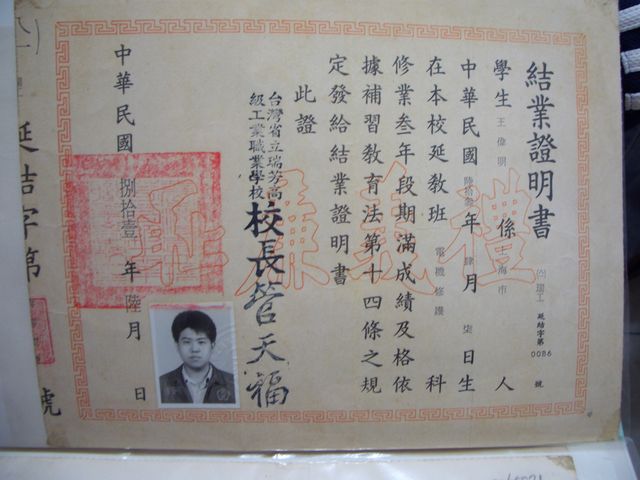 結業證明書
(81)瑞工延結字第0086號
學生王偉明係上海市人
中華民國陸拾參年肆月柒日生
在本校延教班電機修護科
修業叁年段期滿成績及格依
據補習教育法第十四條之規
定發給結業證明書
此證
台灣省立瑞芳高
級工業職業學校
校長營天福
中華民國捌拾壹年陸月日
延結字第
號
禮義廉恥